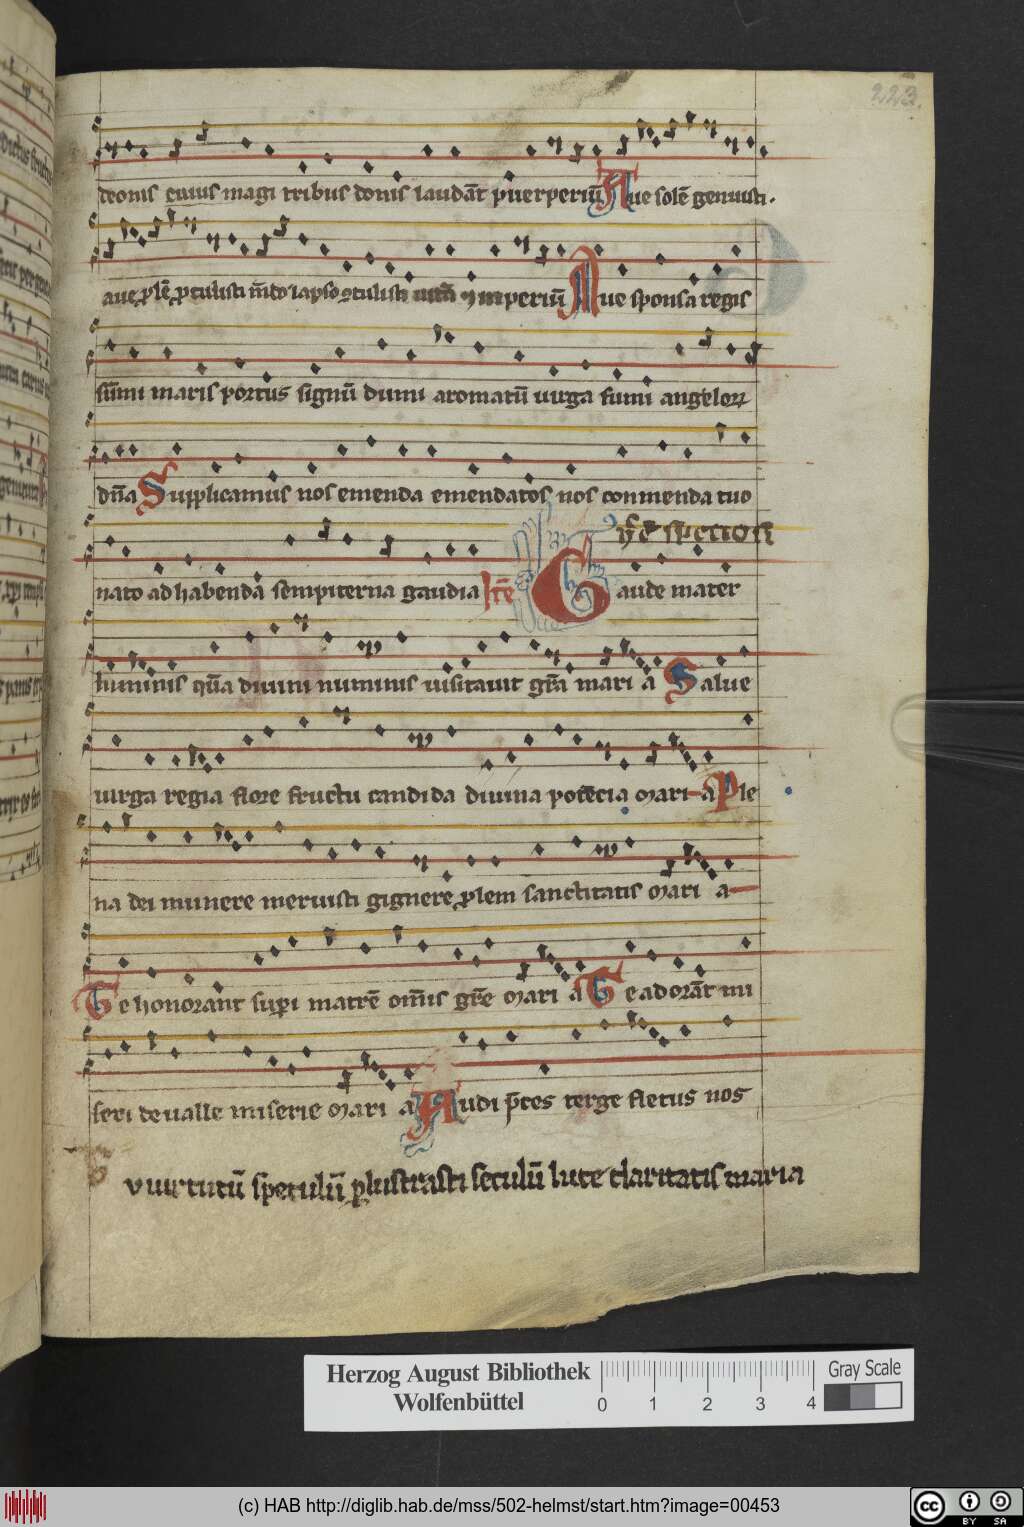 223.
deonis cuius magi tribus donis laudāt puerperiū Aue solē genuisti.
aue plē ptulisti mūdo lapso ꝯtulisti uitā ⁊ imperiū Aue sponsa regis
sūmi maris portus signū dumi aromatū uirga fumi angeloꝝ
dūa Supplicamus nos emenda emendatos nos conmenda tuo
nato ad habenda sempiterna gaudia Itē Gaude mater
luminis quā diuini numinis uisitauit grā mari a Salue
uirga regia flore fructu candida diuina potēcia Mari a Ple
na dei munere meruisti gignere plem sanctitatis Mari a
Te honorant supi matrē oms grē Mari a Te adorāt mi
seri de ualle miserie Mari a Audi pces terge fletus nos
v uirtutū speculū plustrasti seculū luce claritatis maria
Herzog August Bibliothek
Wolfenbüttel
0 1 2 3 4
Gray Scale
(c) HAB http://diglib.hab.de/mss/502-helmst/start.htm?image=00453
cc BY SA